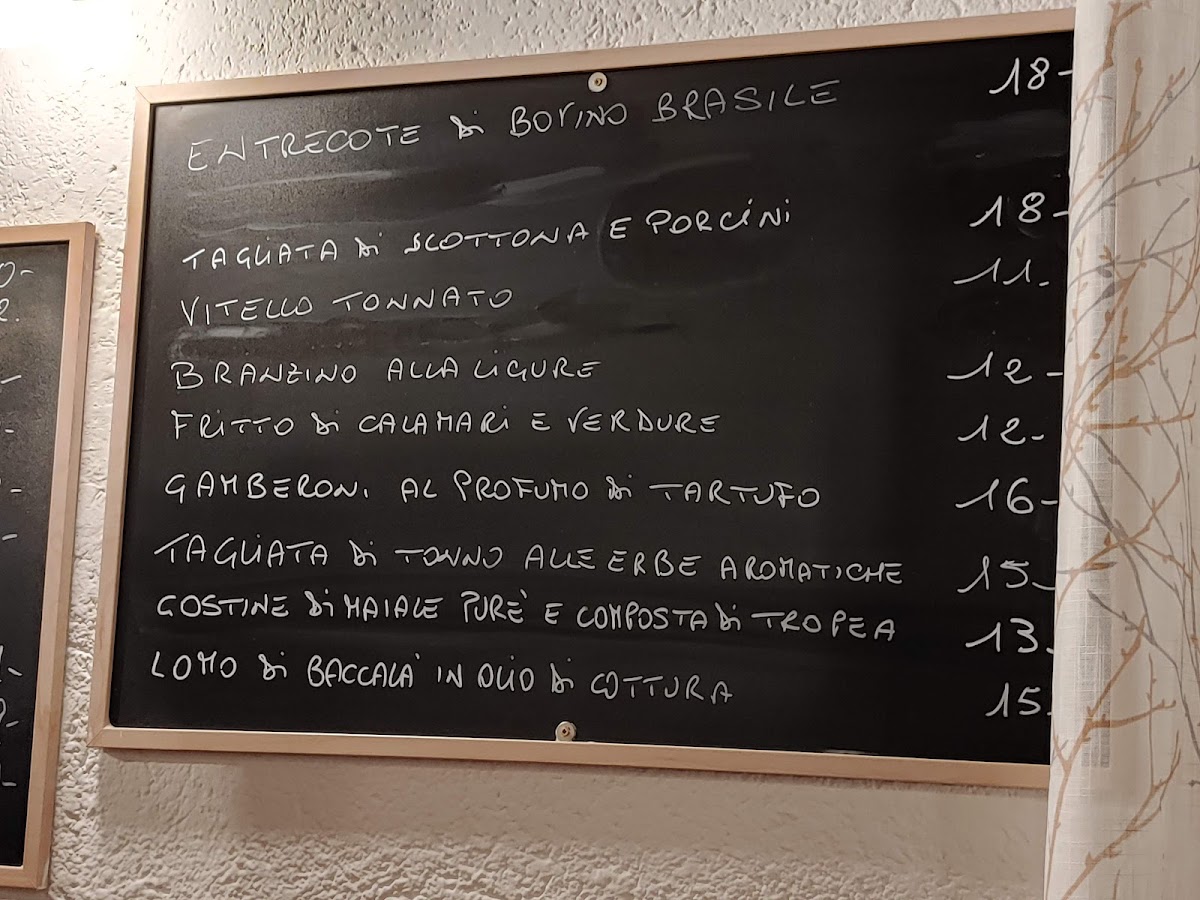 ENTRECOTE di BOVINO BRASILE 18-
TAGLIATA di SCOTTONA E PORCINI 18-
VITELLO TONNATO 11.
BRANZINO ALLA LIGURE 12-
FRITTO di CALAMARI E VERDURE 12-
GAMBERONI AL PROFUMO di TARTUFO 16-
TAGLIATA di TONNO ALLE ERBE AROMATICHE 15-
COSTINE di MAIALE PURÈ E COMPOSTA di TROPEA 13.
LOMO di BACCALÀ IN OLIO di COTTURA 15.